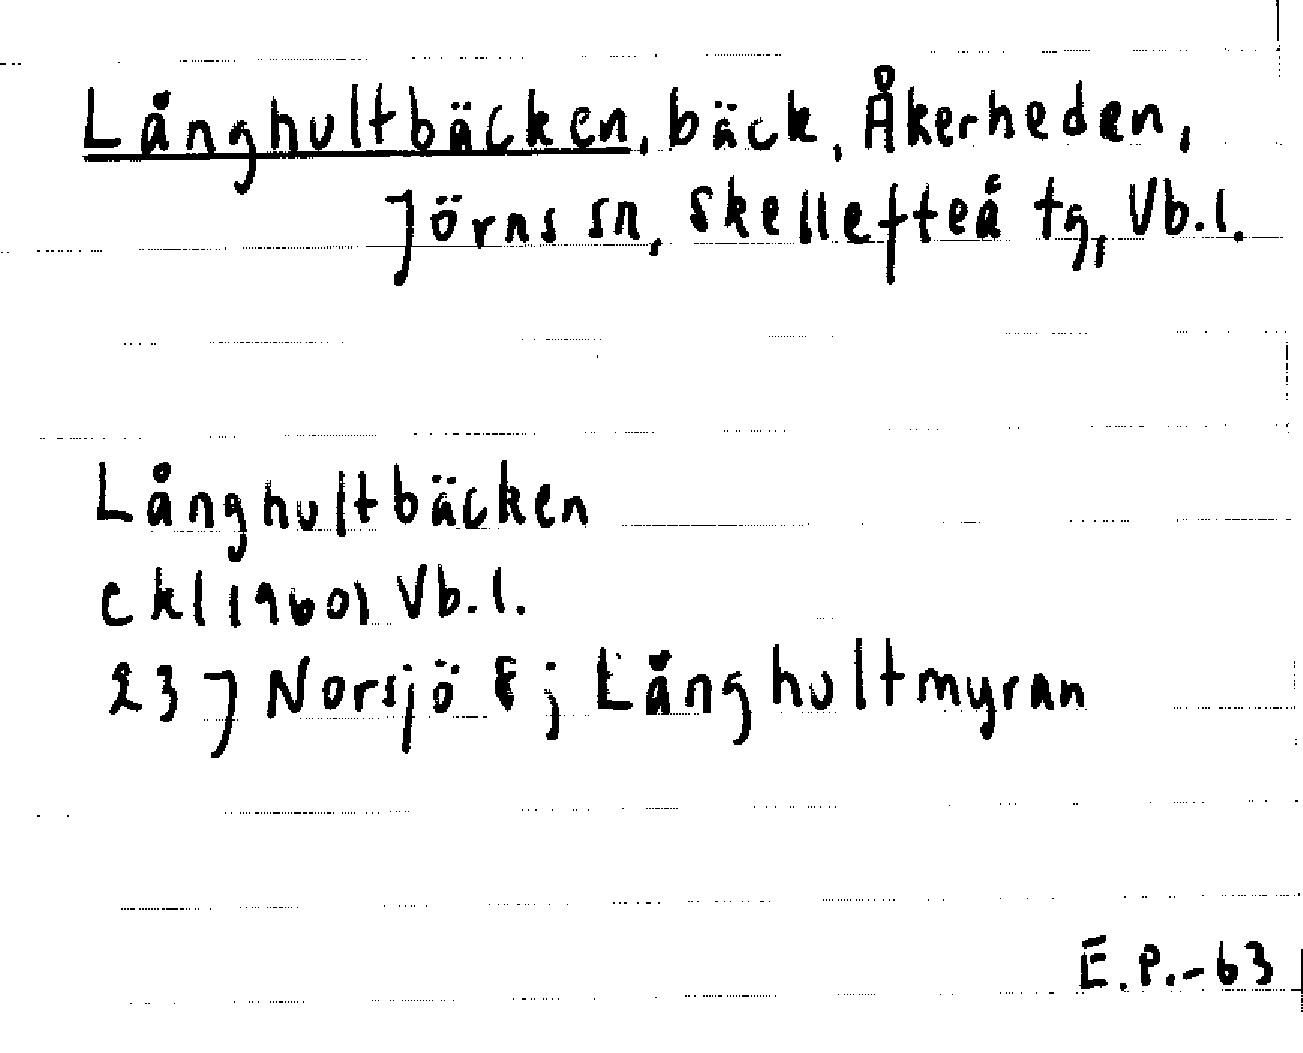 Långhultbäcken, bäck, Åkerheden,
Jörns sn, Skellefteå tg, Vb.l.
Långhultbäcken
ekl (1960) Vb.l.
23 J Norsjö
; Långhultmyran
E.P.-63